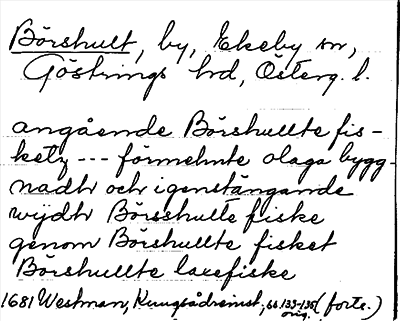 Börshult, by, Ekeby sn,
Göstrings hd, Österg. l.
angående Börshullte fis-
ketz --- förmehnte olaga bygg-
nadhr och igenstängande
wijdhr Börsshulte fiske
genom Börshullte fisket
Börshullte laxefiske
1681 Westman, Kungsådreinst, ss 133-135 (forts.)
orig.